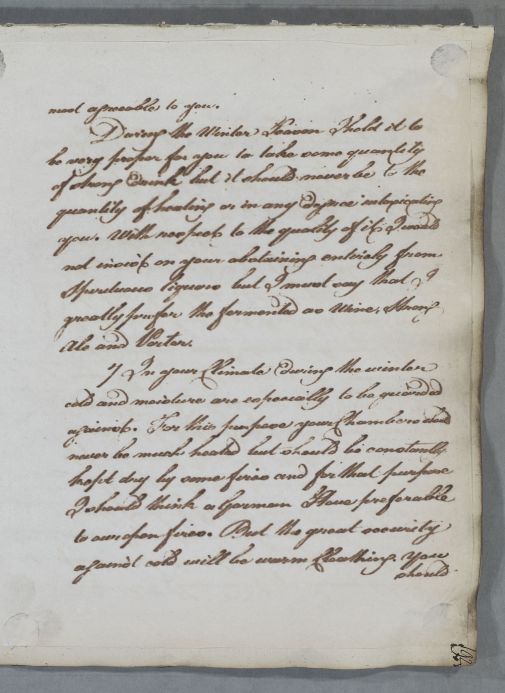 most agreeable to you.
During the Winter Season I hold it to
be very proper for you to take some quantity
of strong Drink but it should never be to the
quantity of heating or in any degree intoxicating
you. With respect to the quality of it I would
not insist on your abstaining entirely from
Spirituous liquors but I must say that I
greatly prefer the fermented as Wine, Strong
Ale and Porter.
7 In your Climate During the winter
cold and moisture are especially to be guarded
against. For this purpose your Chambers should
never be much heated but should be constantly
kept dry by some fires and for that purpose
I should think a German Stove preferable
to our open fires. But the great security
against cold will be warm Cloathing. You
should